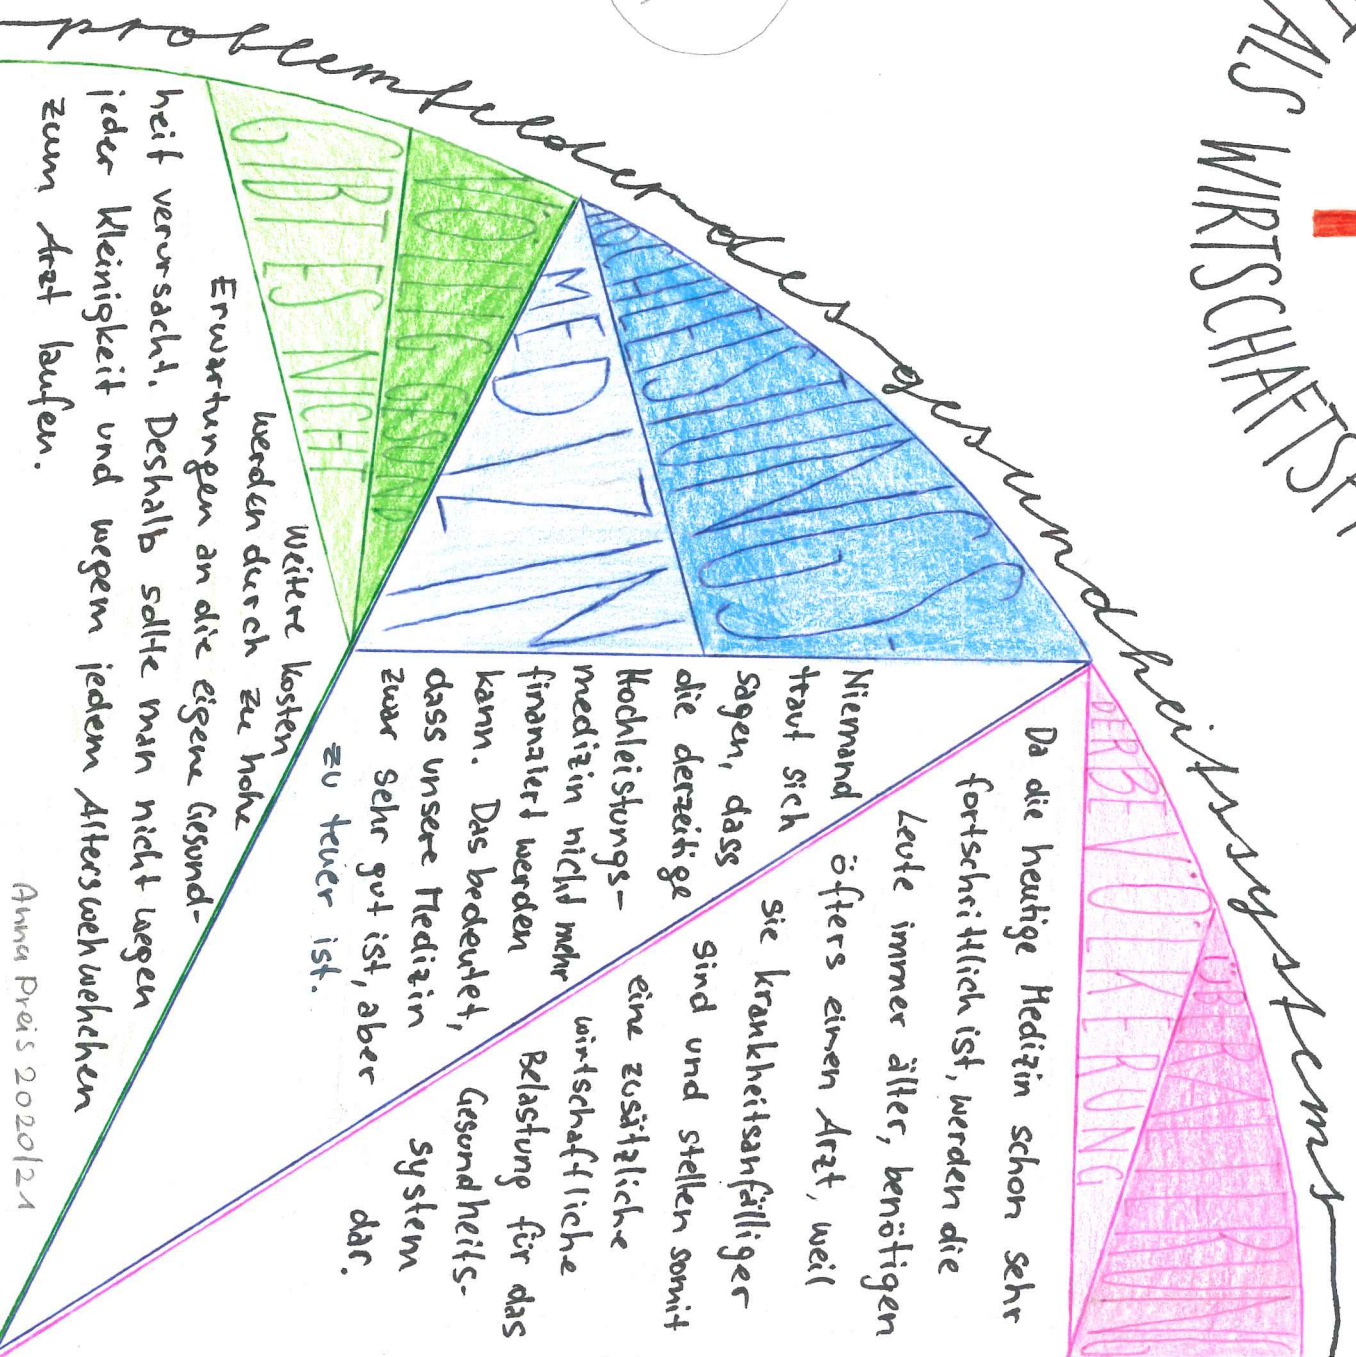 ALS WIRTSCHAFTSF
problemfelder des gesundheitssystems
ÜBERALTERUNG
DER BEVÖLKERUNG
Da die heutige Medizin schon sehr
fortschrittlich ist, werden die
Leute immer älter, benötigen
öfters einen Arzt, weil
sie krankheitsanfälliger
sind und stellen somit
eine zusätzliche
wirtschaftliche
Belastung für das
Gesundheits-
system
dar.
HOCHLEISTUNGS-
MEDIZIN
Niemand
traut sich
sagen, dass
die derzeitige
Hochleistungs-
medizin nicht mehr
finanziert werden
kann. Das bedeutet,
dass unsere Medizin
zwar sehr gut ist, aber
zu teuer ist.
VÖLLIG GESUND
GIBT ES NICHT
Weitere Kosten
werden durch zu hohe
Erwartungen an die eigene Gesund-
heit verursacht. Deshalb sollte man nicht wegen
jeder Kleinigkeit und wegen jedem Alterswehwehchen
zum Arzt laufen.
Anna Preis 2020/21